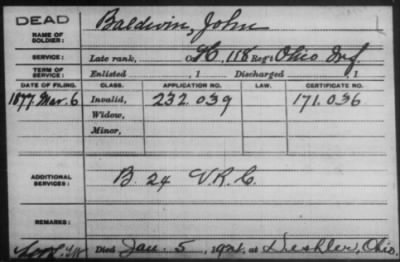 DEAD
NAME OF SOLDIER: Baldwin, John
SERVICE: Late rank, Co. H, 118 Reg't Ohio Inf.
TERM OF SERVICE: Enlisted , 1 Discharged , 1
DATE OF FILING. CLASS. APPLICATION NO. LAW. CERTIFICATE NO.
1877 Mar. 6 Invalid, 232.039 171.036
Widow,
Minor,
ADDITIONAL SERVICES: B. 24 V.R.C.
REMARKS:
Died Jan. 5, at Deshler, Ohio.